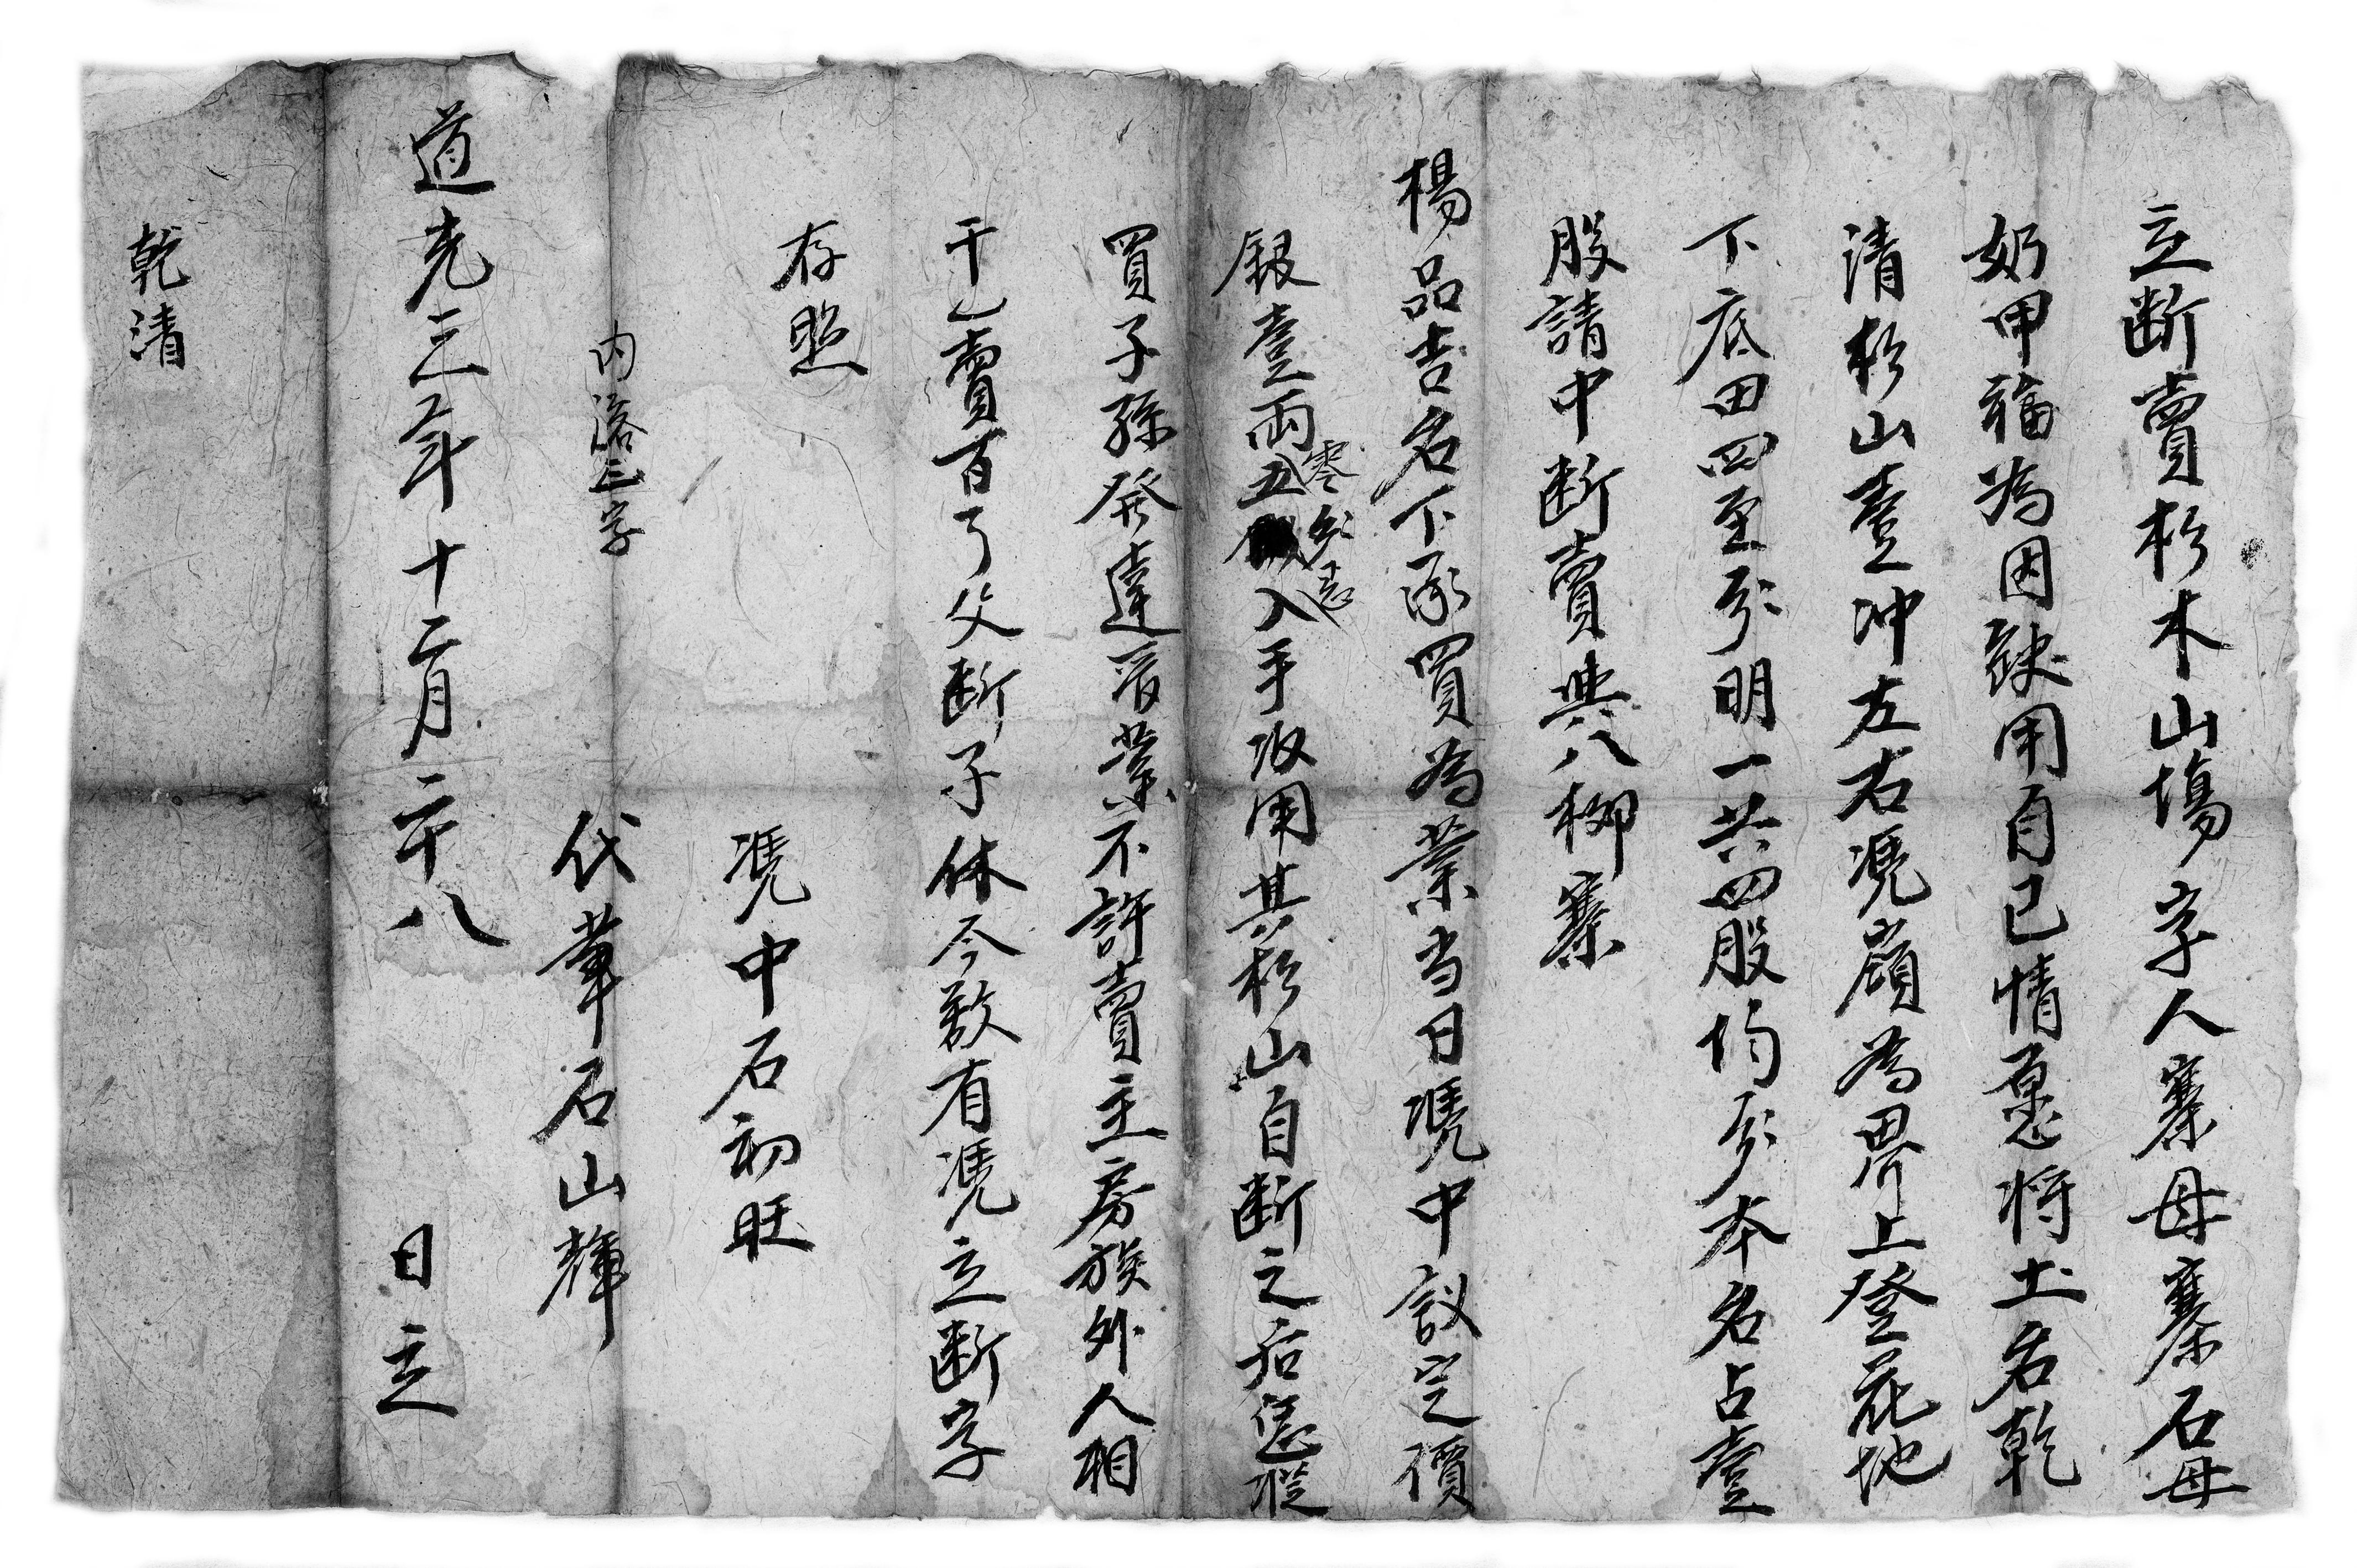 立断賣杉木山塲字人寨母寨石母
奶甲福為因缺用自己情愿将土名乾
清杉山壹冲左右凴嶺為界上登花地
下底田四至分明一共四股均分本名占壹
股請中断賣與八柳寨
楊品吉名下承買為業当日凴中議定價
銀壹両五入手收用其杉山自断之后恁從
零分売
買子孫發達管業不許賣主房族外人相
干一賣百了父断子休今欲有凴立断字
存照
凴中石初旺
内落三字
代筆石山輝
道光三年十二月二十八日立
乾清